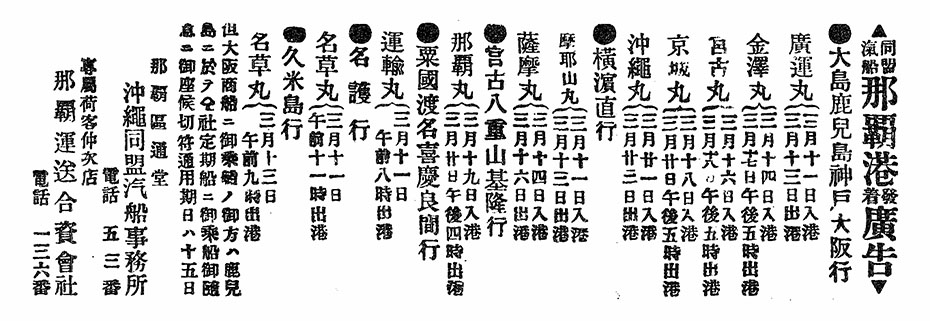 ▲同盟汽船那覇港發着廣告▼
●大島鹿兒島神戸大阪行
廣運丸
三月十一日入港
三月十三日出港
金澤丸
三月十四日入港
日午後五時出港
宮古丸
三月十六日入港
日午後五時出港
京城丸
三月十八日入港
三月廿日午後五時出港
沖繩丸
三月廿一日入港
三月廿三日出港
●横濱直行
摩耶山丸
三月十一日入港
三月十三日出港
薩摩丸
三月十四日入港
三月十六日出港
●宮古八重山基隆行
那覇丸
三月十九日入港
三月廿日午後四時出港
●粟國渡名喜慶良間行
運輸丸
三月十一日
午前八時出港
●名護行
名草丸
三月十一日
午前十一時出港
●久米島行
名草丸
三月十三日
午前九時出港
但大阪商船ニ御乘船ノ御方ハ鹿兒
島ニ於テ仝社定期船ニ御乘船御隨
意ニ御座候切符通用期日ハ十五日
那覇區通堂
沖繩同盟汽船事務所
電話 五三番
專屬荷客仲次店
那覇運送合資會社
電話 一三六番